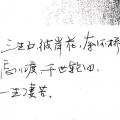 三生石彼岸花,奈何桥
忘川渡,千世轮回
一生凄苦。